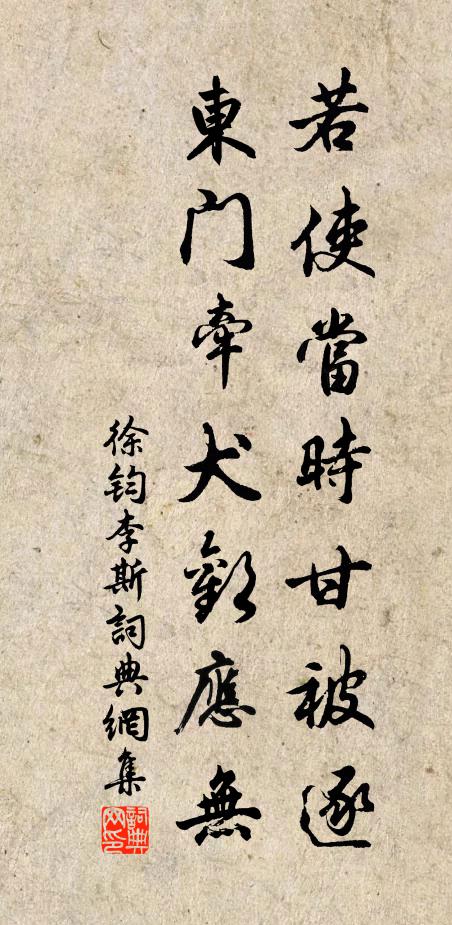 若使當時甘被逐
東門牽犬歎應無
徐鈞李斯詞典網集
詞典網印